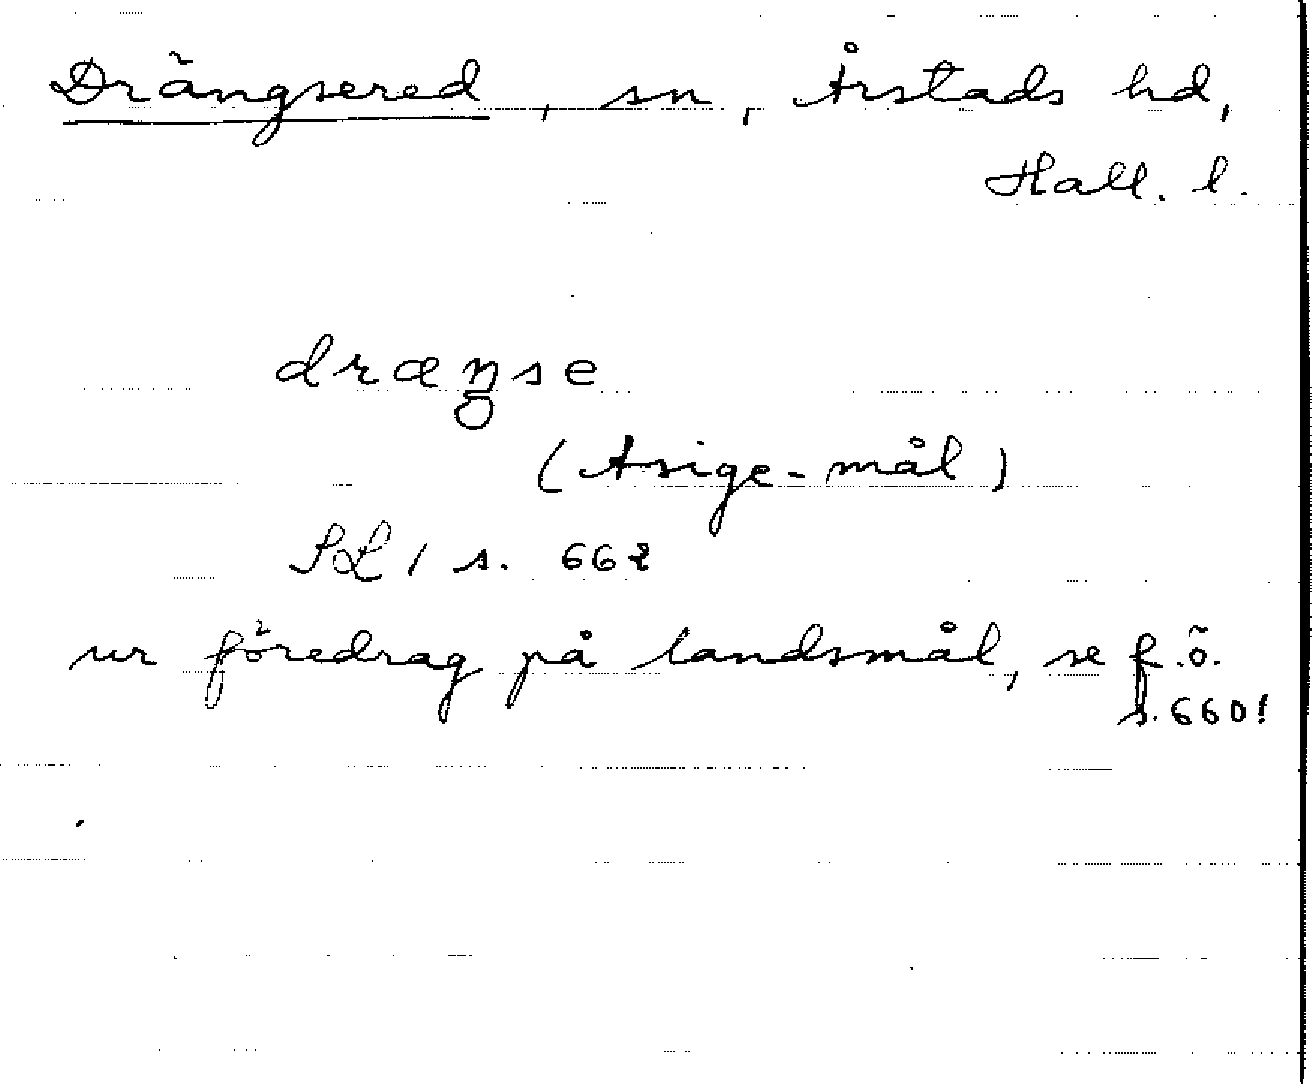 Drängsered, sn, Årstads hd,
Hall. l.
dræŋse
(Asige-mål)
SL 1 s. 662
ur föredrag på landsmål, se f.ö.
s. 660!